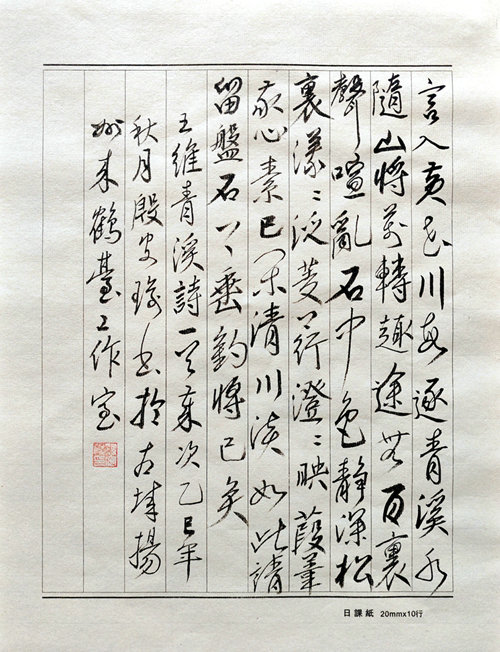 言入黄花川每逐青溪水
隨山將萬轉趣途無百裏
聲喧亂石中色静深松
裏漾〻泛菱荇澄〻映葭葦
我心素已閑清川淡如此請
留盤石上垂釣將已矣
王維青溪詩一首歲次乙巳年
秋月殷書於古城揚
州來鶴臺工作室
日課紙 20mmx10行